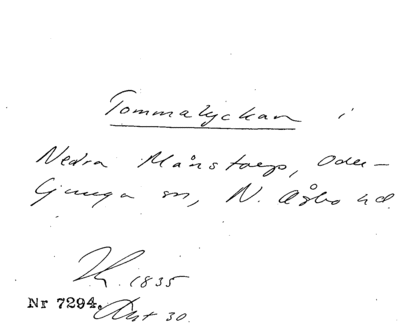 Tommalyckan i
Nedra Månstorp, Oder-
ljunga sn, N. Åsbo hd.
1835
Nr 7294. Akt 30.